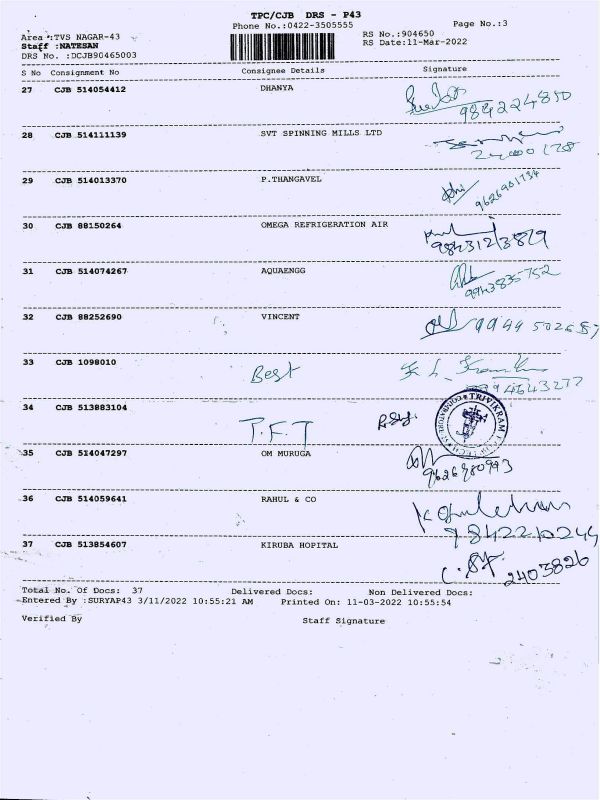 TPC/CJB DRS - P43
Phone No.:0422-3505555
Page No.:3
Area :TVS NAGAR-43
RS No.:904650
Staff :NATESAN
RS Date:11-Mar-2022
DRS No. :DCJB90465003
S No Consignment No Consignee Details Signature
27 CJB 514054412 DHANYA
9842224850
28 CJB 514111139 SVT SPINNING MILLS LTD
29 CJB 514013370 P.THANGAVEL
9626901734
30 CJB 88150264 OMEGA REFRIGERATION AIR
31 CJB 514074267 AQUAENGG
9943835752
32 CJB 88252690 VINCENT
33 CJB 1098010 Best
34 CJB 513883104
T.F.T
TRIVIKRAM
COIMBATORE
35 CJB 514047297 OM MURUGA
9626980943
36 CJB 514059641 RAHUL & CO
37 CJB 513854607 KIRUBA HOPITAL
2403826
Total No. Of Docs: 37 Delivered Docs: Non Delivered Docs:
Entered By :SURYAP43 3/11/2022 10:55:21 AM Printed On: 11-03-2022 10:55:54
Verified By Staff Signature